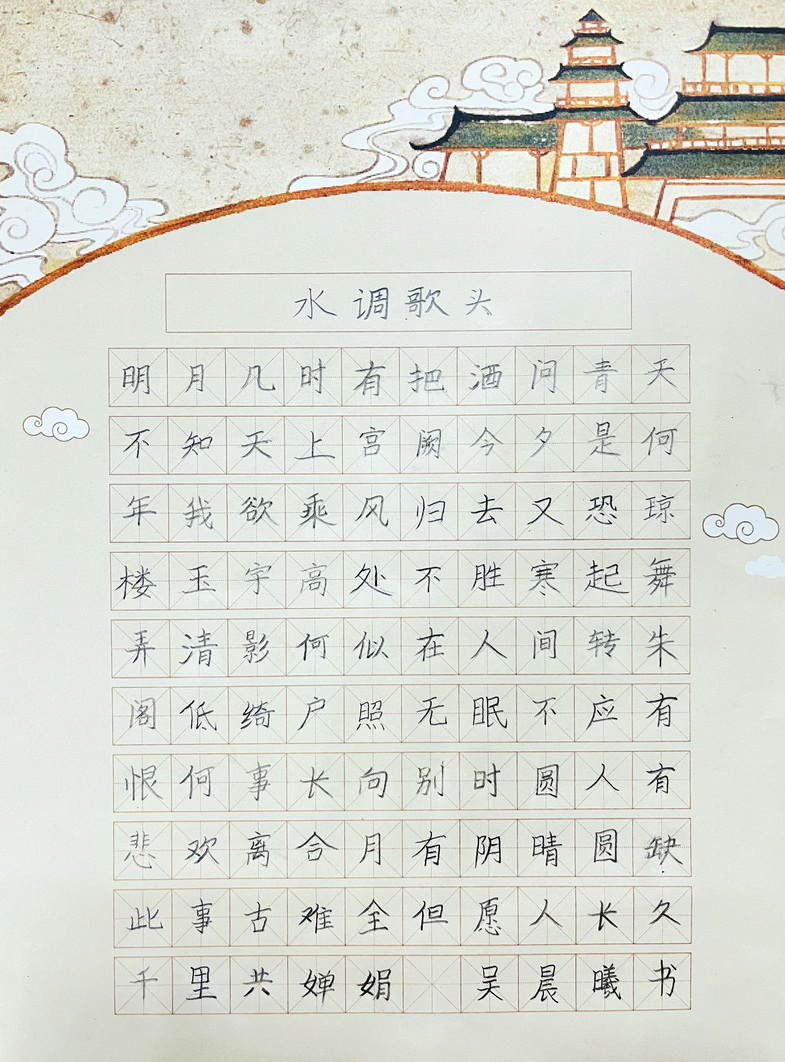 水调歌头
明月几时有把酒问青天
不知天上宫阙今夕是何
年我欲乘风归去又恐琼
楼玉宇高处不胜寒起舞
弄清影何似在人间转朱
阁低绮户照无眠不应有
恨何事长向别时圆人有
悲欢离合月有阴晴圆缺
此事古难全但愿人长久
千里共婵娟 吴晨曦书